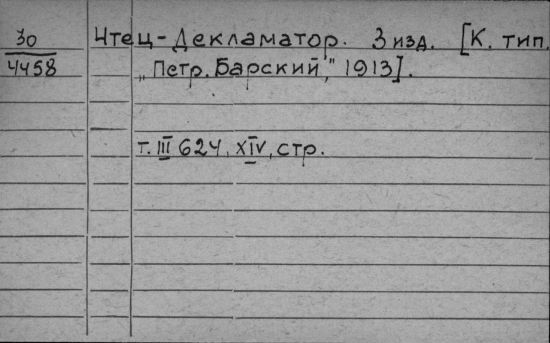 30 Чтец-Декламатор. 3 изд. [К. тип.
4458 „Петр. Барский," 1913].
т. III 624, XIV, стр.